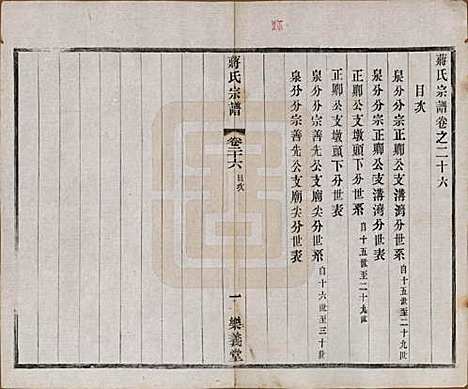 蔣氏宗譜卷之二十六
目次
泉分分宗正卿公支溝灣分世系 自十五世至二十九世
泉分分宗正卿公支溝灣分世表
正卿公支墩頭下分世系 自十五世至二十九世
正卿公支墩頭下分世表
泉分分宗善先公支廟尖分世系 自十六世至三十世
泉分分宗善先公支廟尖分世表
蔣氏宗譜 卷二十六 目次 一 樂義堂